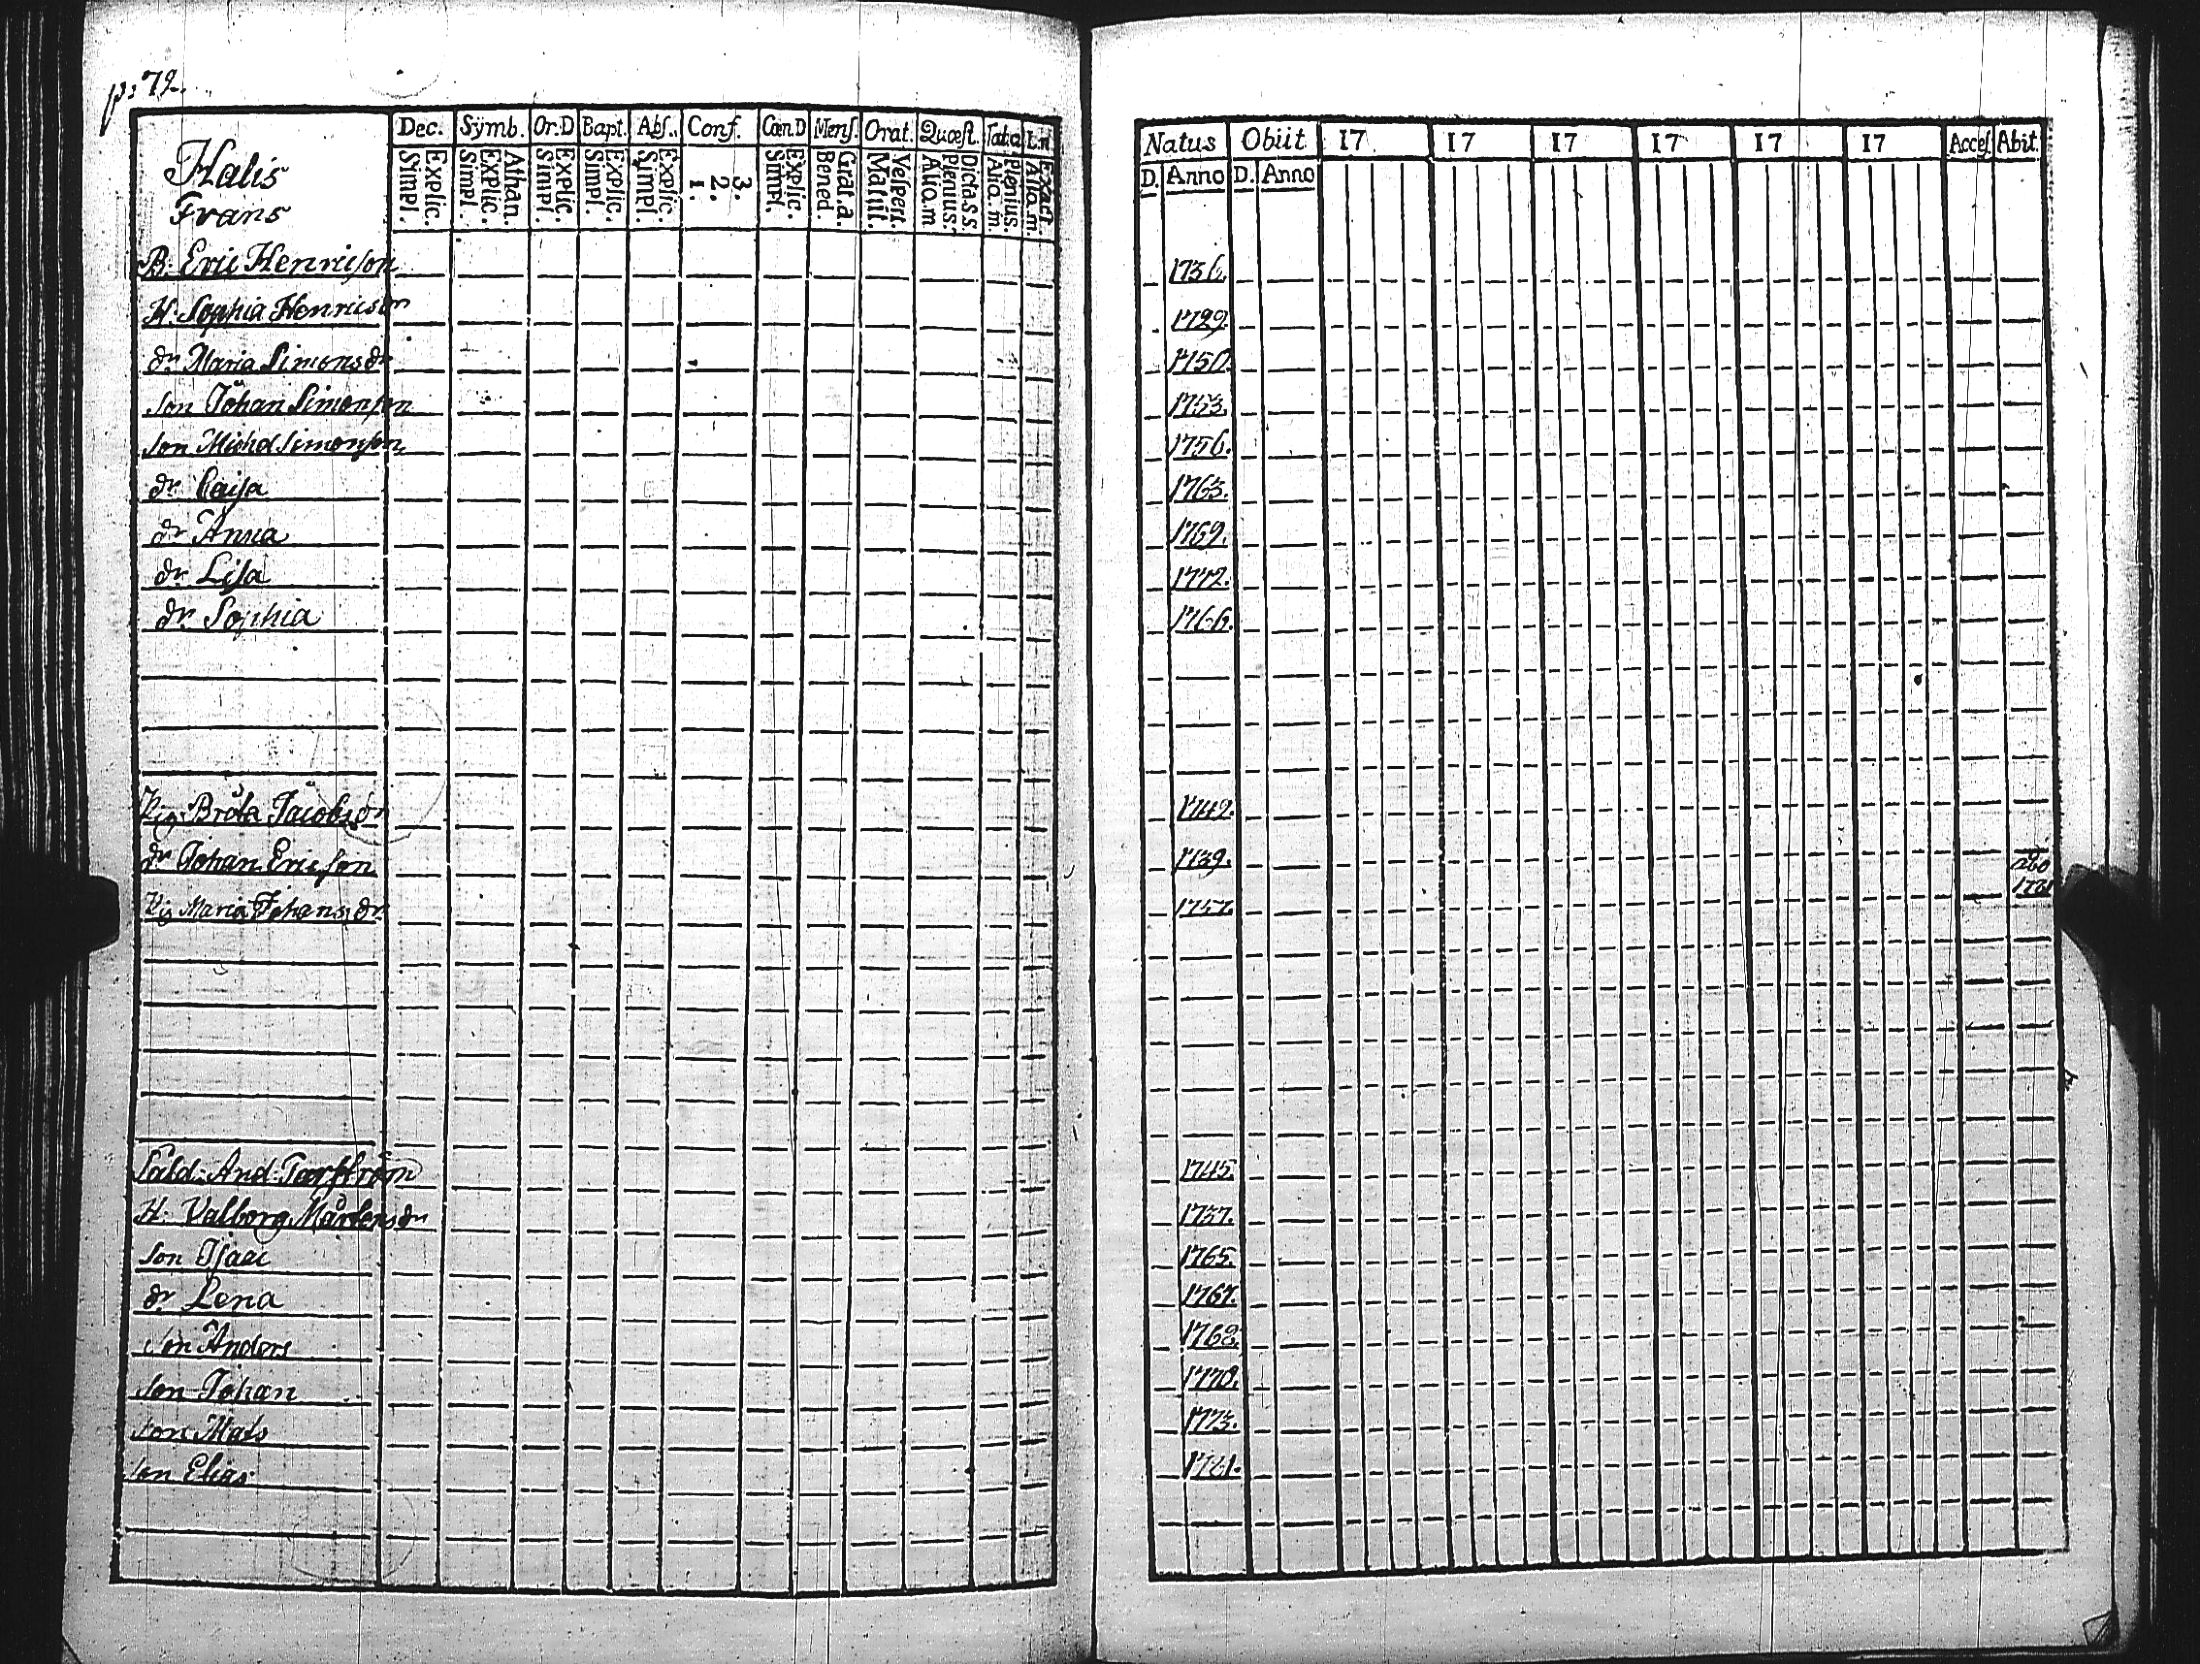 p: 72.
Dec. Sÿmb. Or:D Bapt. Abs. Conf. Cœn.D Mens. Orat. Quæst.
Explic. Simpl. Athan. Explic. Simpl. Explic. Simpl. Explic. Simpl. Explic. Simpl. 3. 2. 1. Explic. Simpl. Grat.a. Bened. Vespert. Matut. Dicta S.S. Plenius. Aко.m Plenius. Ako.m. Exact.
Halis
Frans
B. Eric Henricson
H. Sophia Henricsdr
dr Maria Simonsdr
Son Johan Simonson
Son Michel Simonson
dr Caisa
dr Anna
dr Lisa
dr Sophia
Pig Brita Jacobsdr
dr Johan Ericson
Pig Maria Johansdr
Sold. And. Torström
H. Valborg Mårtensdr
Son Isaac
dr Lena
Son Anders
Son Johan
Son Mats
Son Elias
Natus Obiit 17 17 17 17 17 17 Acces. Abit.
D. Anno D. Anno
1736.
1729.
1750.
1753.
1756.
1763.
1769.
1772.
1766.
1749.
1739.
1757.
1745.
1737.
1765.
1767.
1768.
1770.
1773.